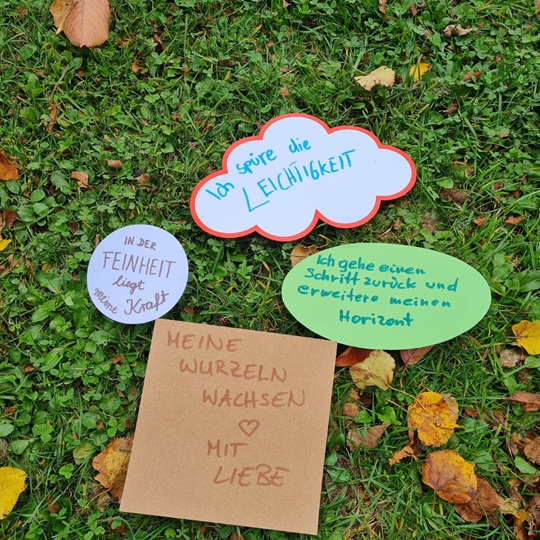 Ich spüre die
LEICHTIGKEIT
IN DER
FEINHEIT
liegt
meine Kraft
Ich gehe einen
Schritt zurück und
erweitere meinen
Horizont
MEINE
WURZELN
WACHSEN
♡
MIT
LIEBE